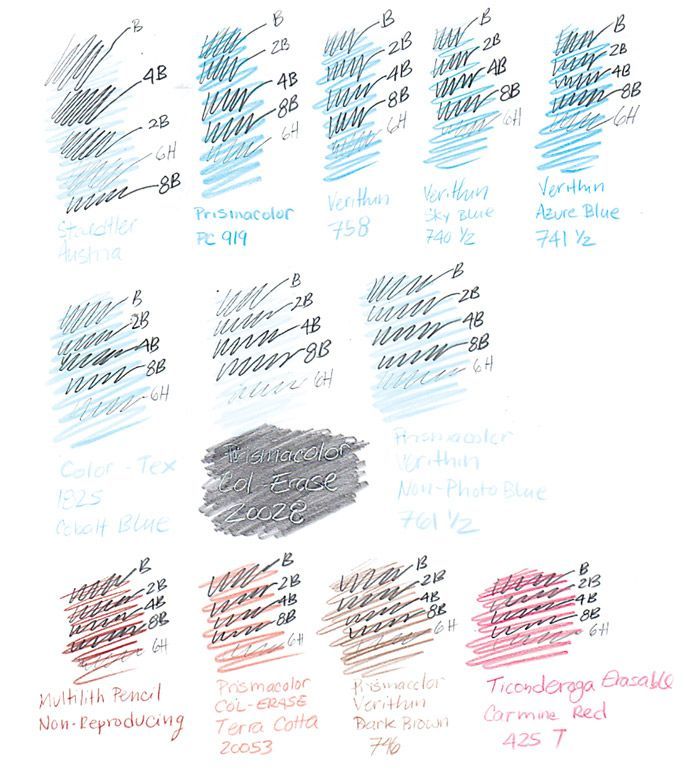 B
4B
2B
6H
8B
Staedtler
Austria
B
2B
4B
8B
6H
Prismacolor
PC 919
B
2B
4B
8B
6H
Verithin
758
B
2B
4B
8B
6H
Verithin
Sky Blue
740 1/2
B
2B
4B
8B
6H
Verithin
Azure Blue
741 1/2
B
2B
4B
8B
6H
Color-Tex
1825
Cobalt Blue
B
2B
4B
8B
6H
Prismacolor
Col-Erase
20028
B
2B
4B
8B
6H
Prismacolor
Verithin
Non-Photo Blue
761 1/2
B
2B
4B
8B
6H
Multilith Pencil
Non-Reproducing
B
2B
4B
8B
6H
Prismacolor
COL-ERASE
Terra Cotta
20053
B
2B
4B
8B
6H
Prismacolor
Verithin
Dark Brown
746
B
2B
4B
8B
6H
Ticonderoga Erasable
Carmine Red
425 T